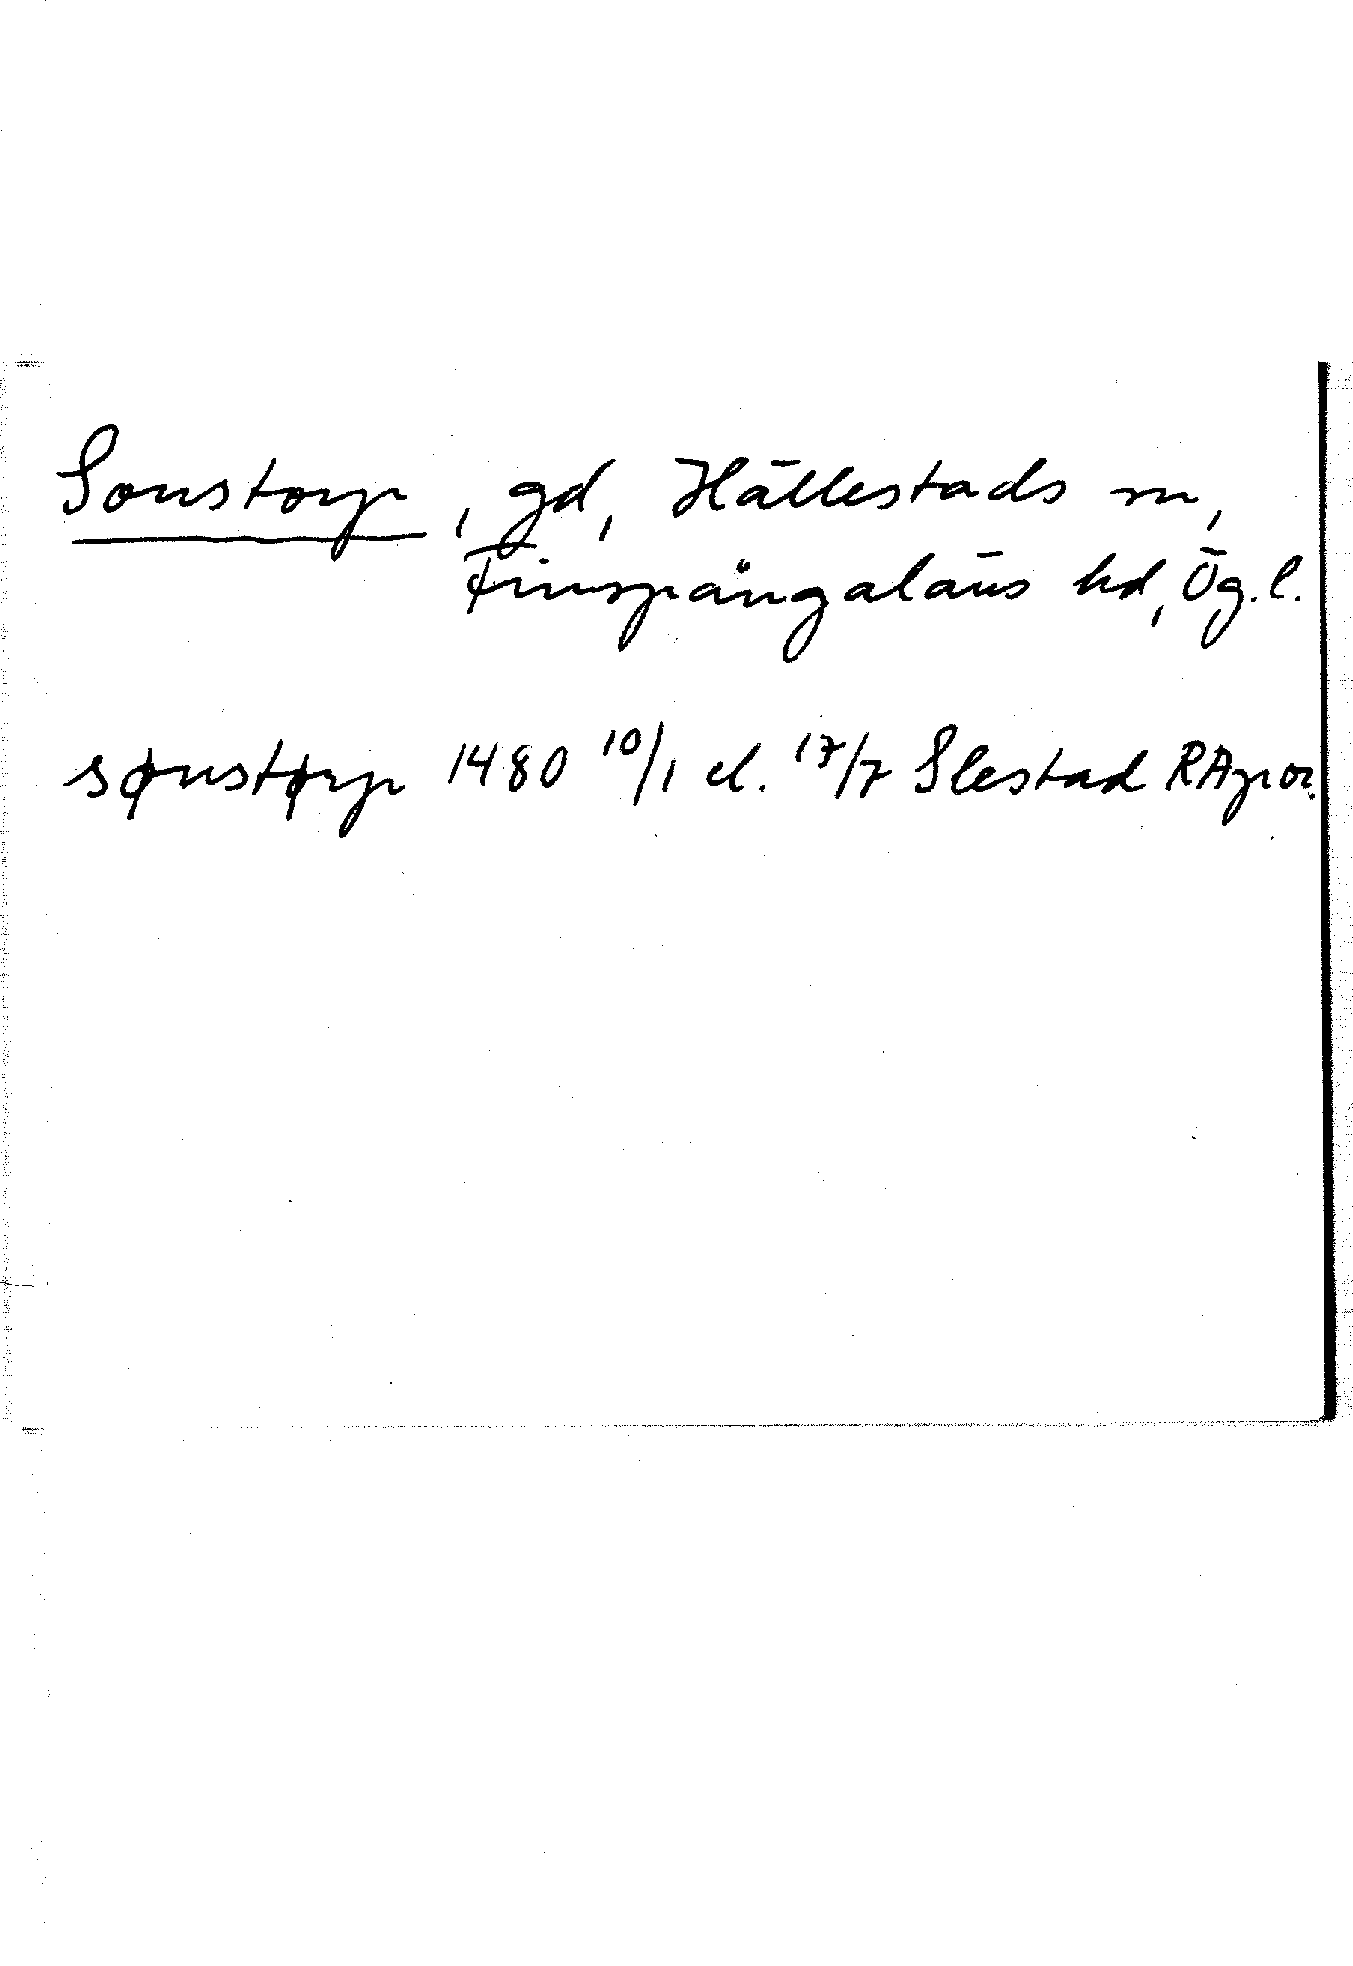 Sonstorp, gd, Hällestads sn,
Finspångaläns hd, Ög.l.
sønstørp 1480 10/1 el. 17/7 Slestad RAp or.